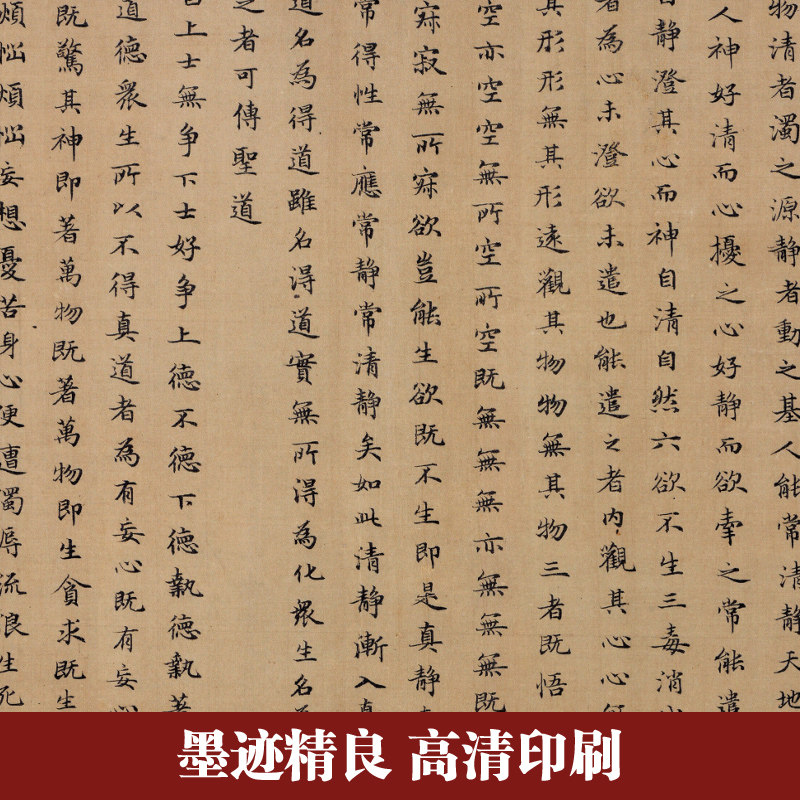 物清者濁之源静者動之基人能常清静天地
人神好清而心擾之心好静而欲牽之常能遣
静澄其心而神自清自然六欲不生三毒消
者為心未澄欲未遣也能遣之者内觀其心心
其形形無其形遠觀其物物無其物三者既悟
空亦空空無所空所空既無無無亦無無無既
寂寂無所寂欲豈能生欲既不生即是真静
常得性常應常静常清静矣如此清静漸入真
道名為得道雖名得道實無所得為化衆生名
之者可傳聖道
上士無争下士好争上德不德下德執德執著
道德衆生所以不得真道者為有妄心既有妄心
既驚其神即著萬物既著萬物即生貪求既生
煩惱煩惱妄想憂苦身心便遭濁辱流浪生死
墨迹精良 高清印刷